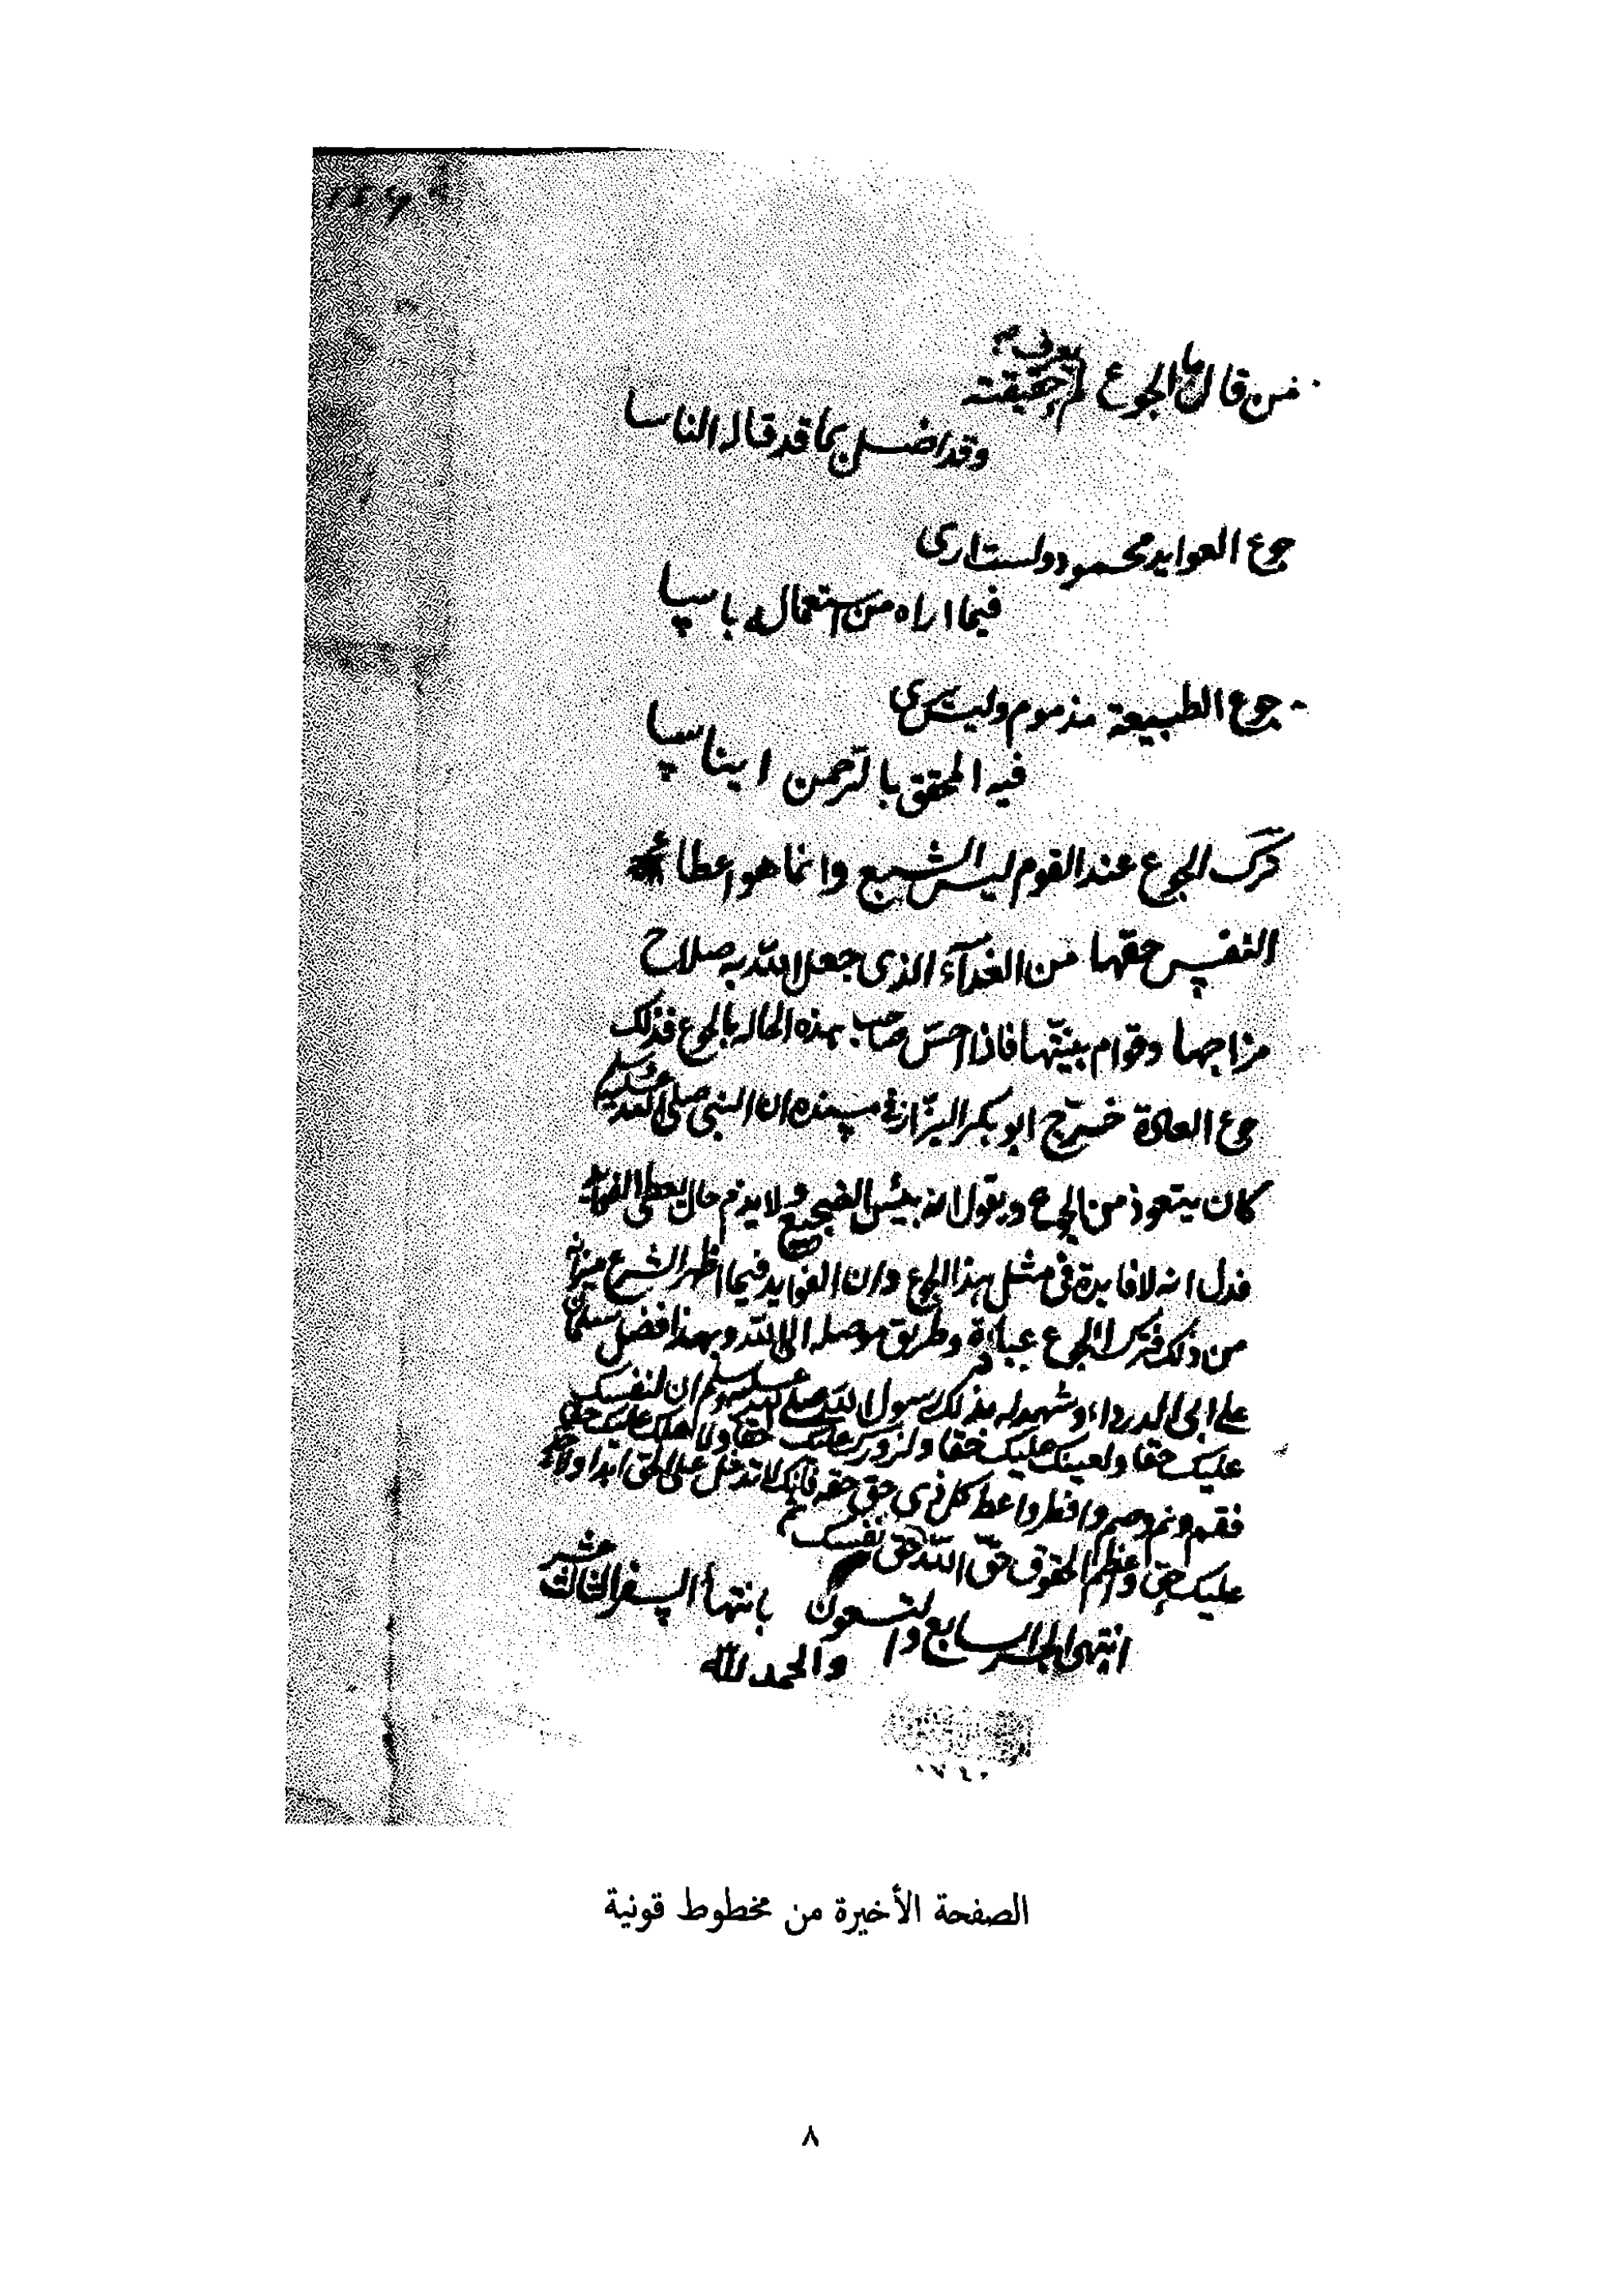 من قال ما الجوع لم يعرف حقيقته
وقد اضل بما قد قاله الناسا
جوع العوايد محمود ولست ارى
فيما اراه من استعماله باسا
جوع الطبيعة مذموم وليس يرى
فيه المحقق بالرحمن ايناسا
ترك الجوع عند القوم ليس الشبع وانما هو اعطا
النفس حقها من الغذآء الذى جعل الله به صلاح
مزاجها وقوام بنيتها فاذا احسّ صاحب هذه الحاله بالجوع فذلك
جوع العادة خرّج ابو بكر البزّار فى مسنده ان النبى صلى الله عليه وسلم
كان يتعوذ من الجوع ويقول انه بئس الضجيع ولا يذم حال يعطى الفوايد
فدل انه لا فايدة فى مثل هذا الجوع وان الفوايد فيما اظهر الشرع ميزانه
من ذلك فترك الجوع عبادة وطريق موصله الى الله وبهذا فضل سلمان
على ابى الدرداء وشهد له بذلك رسول الله صلى الله عليه وسلم ان لنفسك
عليك حقا ولعينك عليك حقا ولزورك عليك حقا ولاهلك عليك حقا
فقم ونم وصم وافطر واعط كل ذى حق حقه فانك لا تدخل على الحق ابدا ولاحد
عليك حق واعظم الحقوق حقّ الله ثم حق نفسك
انتهى الجزء السابع والتسعون بانتهآ السفر الثالث عشر
والحمد لله
الصفحة الأخيرة من مخطوط قونية
٨